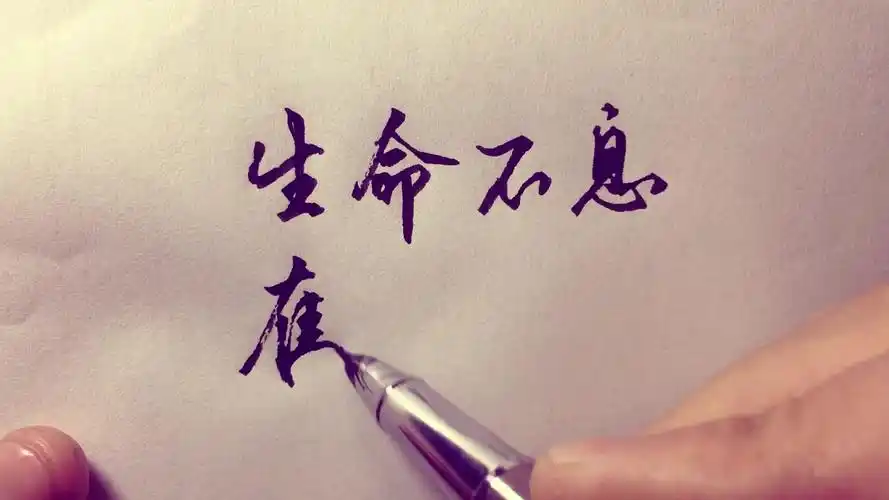 生命不息